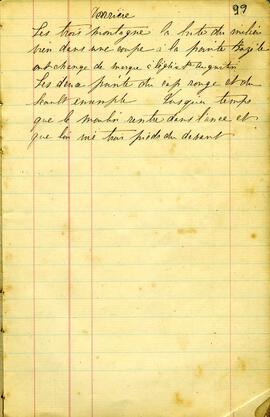 99
Verrière
Les trois montagne la bute du milieu
bien dans une coupe à la pointe Bazile
ont change de marque à l'église St Augustin
Les deux pointe du cap rouge et du
Sault Jusquau temps
que le moulin rentre dans l'ance et
que l'on nié trois pieds du devant